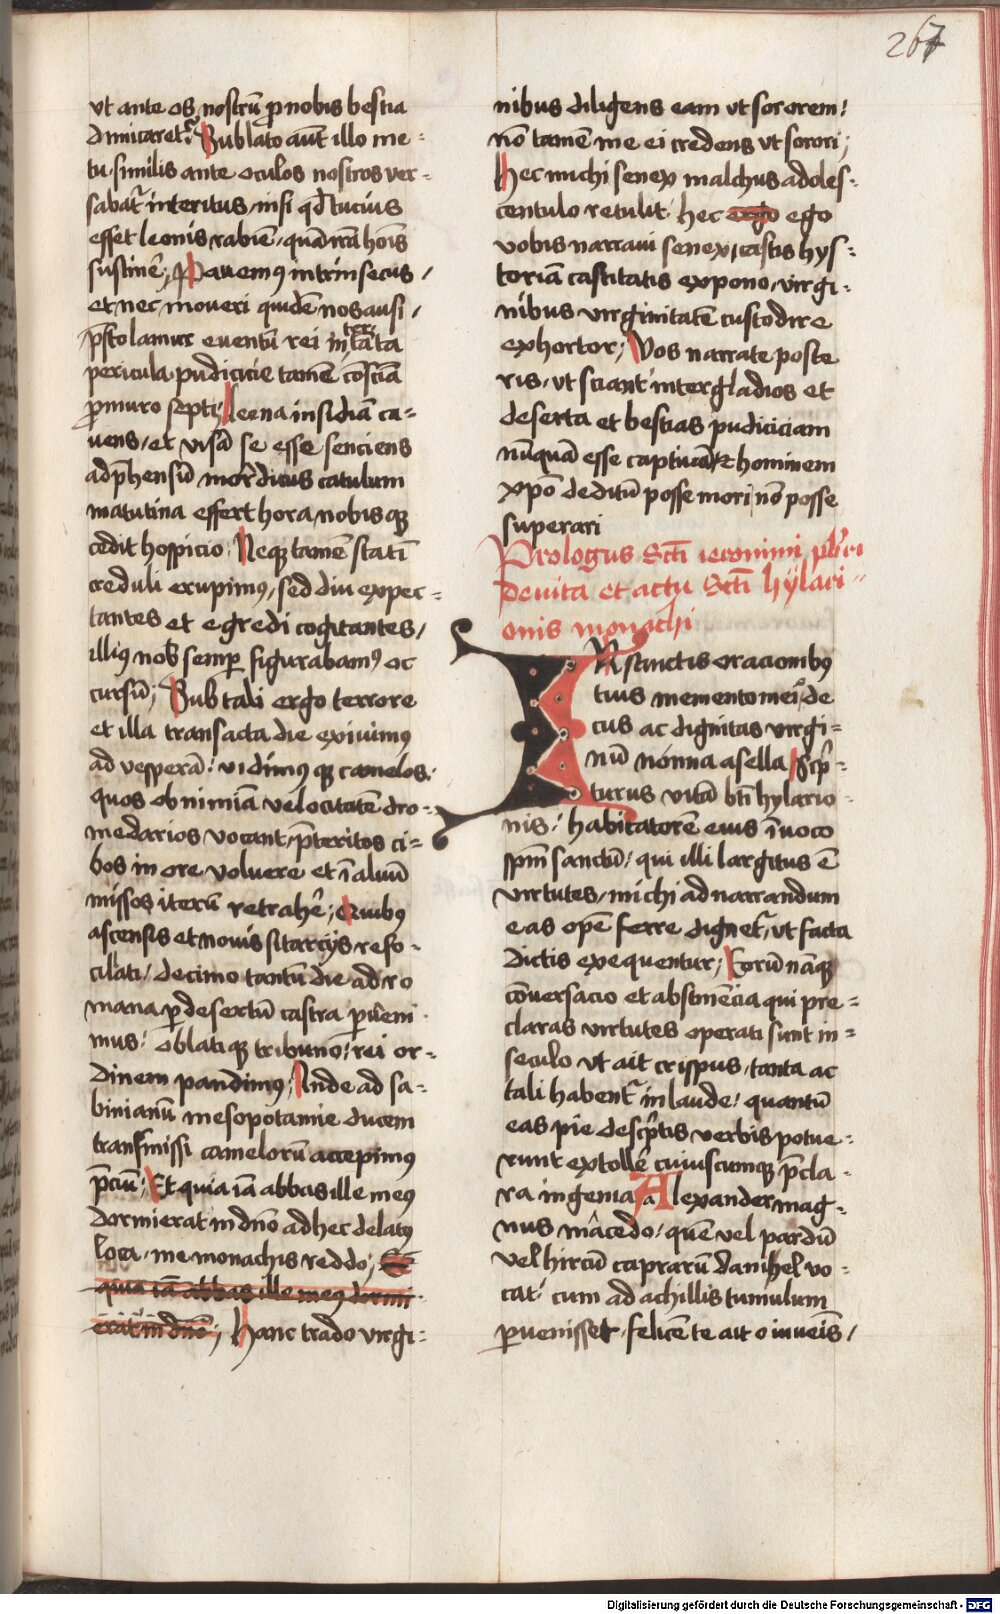 267
vt ante os nostrū ꝓ nobis bestia
dimicaret᷑. Sublato aūt illo me⸗
tu similis ante oculos nostros ver⸗
sabat᷑ interitus / nisi qd tucius
esset leonis rabiē / quā irā hoīs
sustinē; Pauemꝰ intrinsecus /
et nec moueri quidē nos ausi /
p̄stolamur euentū rei int͛ tāta
pericula pudicicie tamē cōsciā
ꝓ muro septi; leena insidiā ca⸗
uens / et visā se esse senciens
adp̄hensū mordicus catulum
matutina effert hora nobisqꝫ
cedit hospicio. Neqꝫ tamē statī
creduli erupimꝰ / sed diu expec⸗
tantes et egredi cogitantes /
illiꝰ nob semꝑ figurabamꝰ oc
cursū; Sub tali ergo terrore
et illa transacta die exiuimꝰ
ad vesperā: vidimꝰqꝫ camelos.
quos ob nimiā velocitatē dro⸗
medarios vocant / p̄teritos ci⸗
bos in ore voluere et ī aluū
missos iterū retrahē; Quibꝰ
ascensis et nouis sitarcijs refo⸗
cilati / decimo tantū die ad ro
mana ꝑ desertū castra ꝑueni⸗
mus: oblatiqꝫ tribuno: rei or⸗
dinem pandimꝰ; Inde ad sa⸗
binianū mesopotamie ducem
transmissi camelorū accepimꝰ
p̄ciū; Et quia iā abbas ille meꝰ
dormierat in dn̄o ad hec delatꝰ
loca / me monachis reddo; Et
quia iā abbas ille meꝰ dormi⸗
erat in dn̄o; Hanc trado virgi⸗
nibus diligens eam vt sororem:
nō tamē me ei credens vt sorori;
Hec michi senex malchus adoles⸗
centulo retulit. hec ergo ego
vobis narraui senex / castis hys⸗
toriā castitatis expono / virgi⸗
nibus virginitatē custodire
exhortor; Vos narrate poste
ris / vt sciant inter gladios et
deserta et bestias pudiciciam
nūquā esse captiuā / ⁊ hominem
xpō deditū posse mori nō posse
superari
Prologus Scti ieronimi pb̄ri
de vita et actu Scti hÿlari⸗
onis monachi
IN sanctis oracionibꝰ
tuis memento mei o de
cus ac dignitas virgi⸗
nū nonna asella / Scp̄⸗
turus vitā bti hylario⸗
nis: habitatorē eius īuoco
spm̄ sanctū / qui illi largitus ē
virtutes / michi ad narrandum
eas opē ferre dignet᷑ / vt facta
dictis exequentur; Eorū nāqꝫ
cōuersacio et abstinēcia qui pre⸗
claras virtutes operati sunt in⸗
seculo vt ait crispus / tanta ac
tali habent᷑ in laude: quantū
eas pie descp̄tis verbis potue⸗
runt extollē cuiuscumqꝫ p̄cla⸗
ra ingenia Alexander mag⸗
nus mâcedo / quē vel pardū
vel hircū caprarū danihel vo⸗
cat: cum ad achillis tumulum
ꝑuenisset / felicē te ait o iuueīs /
Digitalisierung gefördert durch die Deutsche Forschungsgemeinschaft - DFG